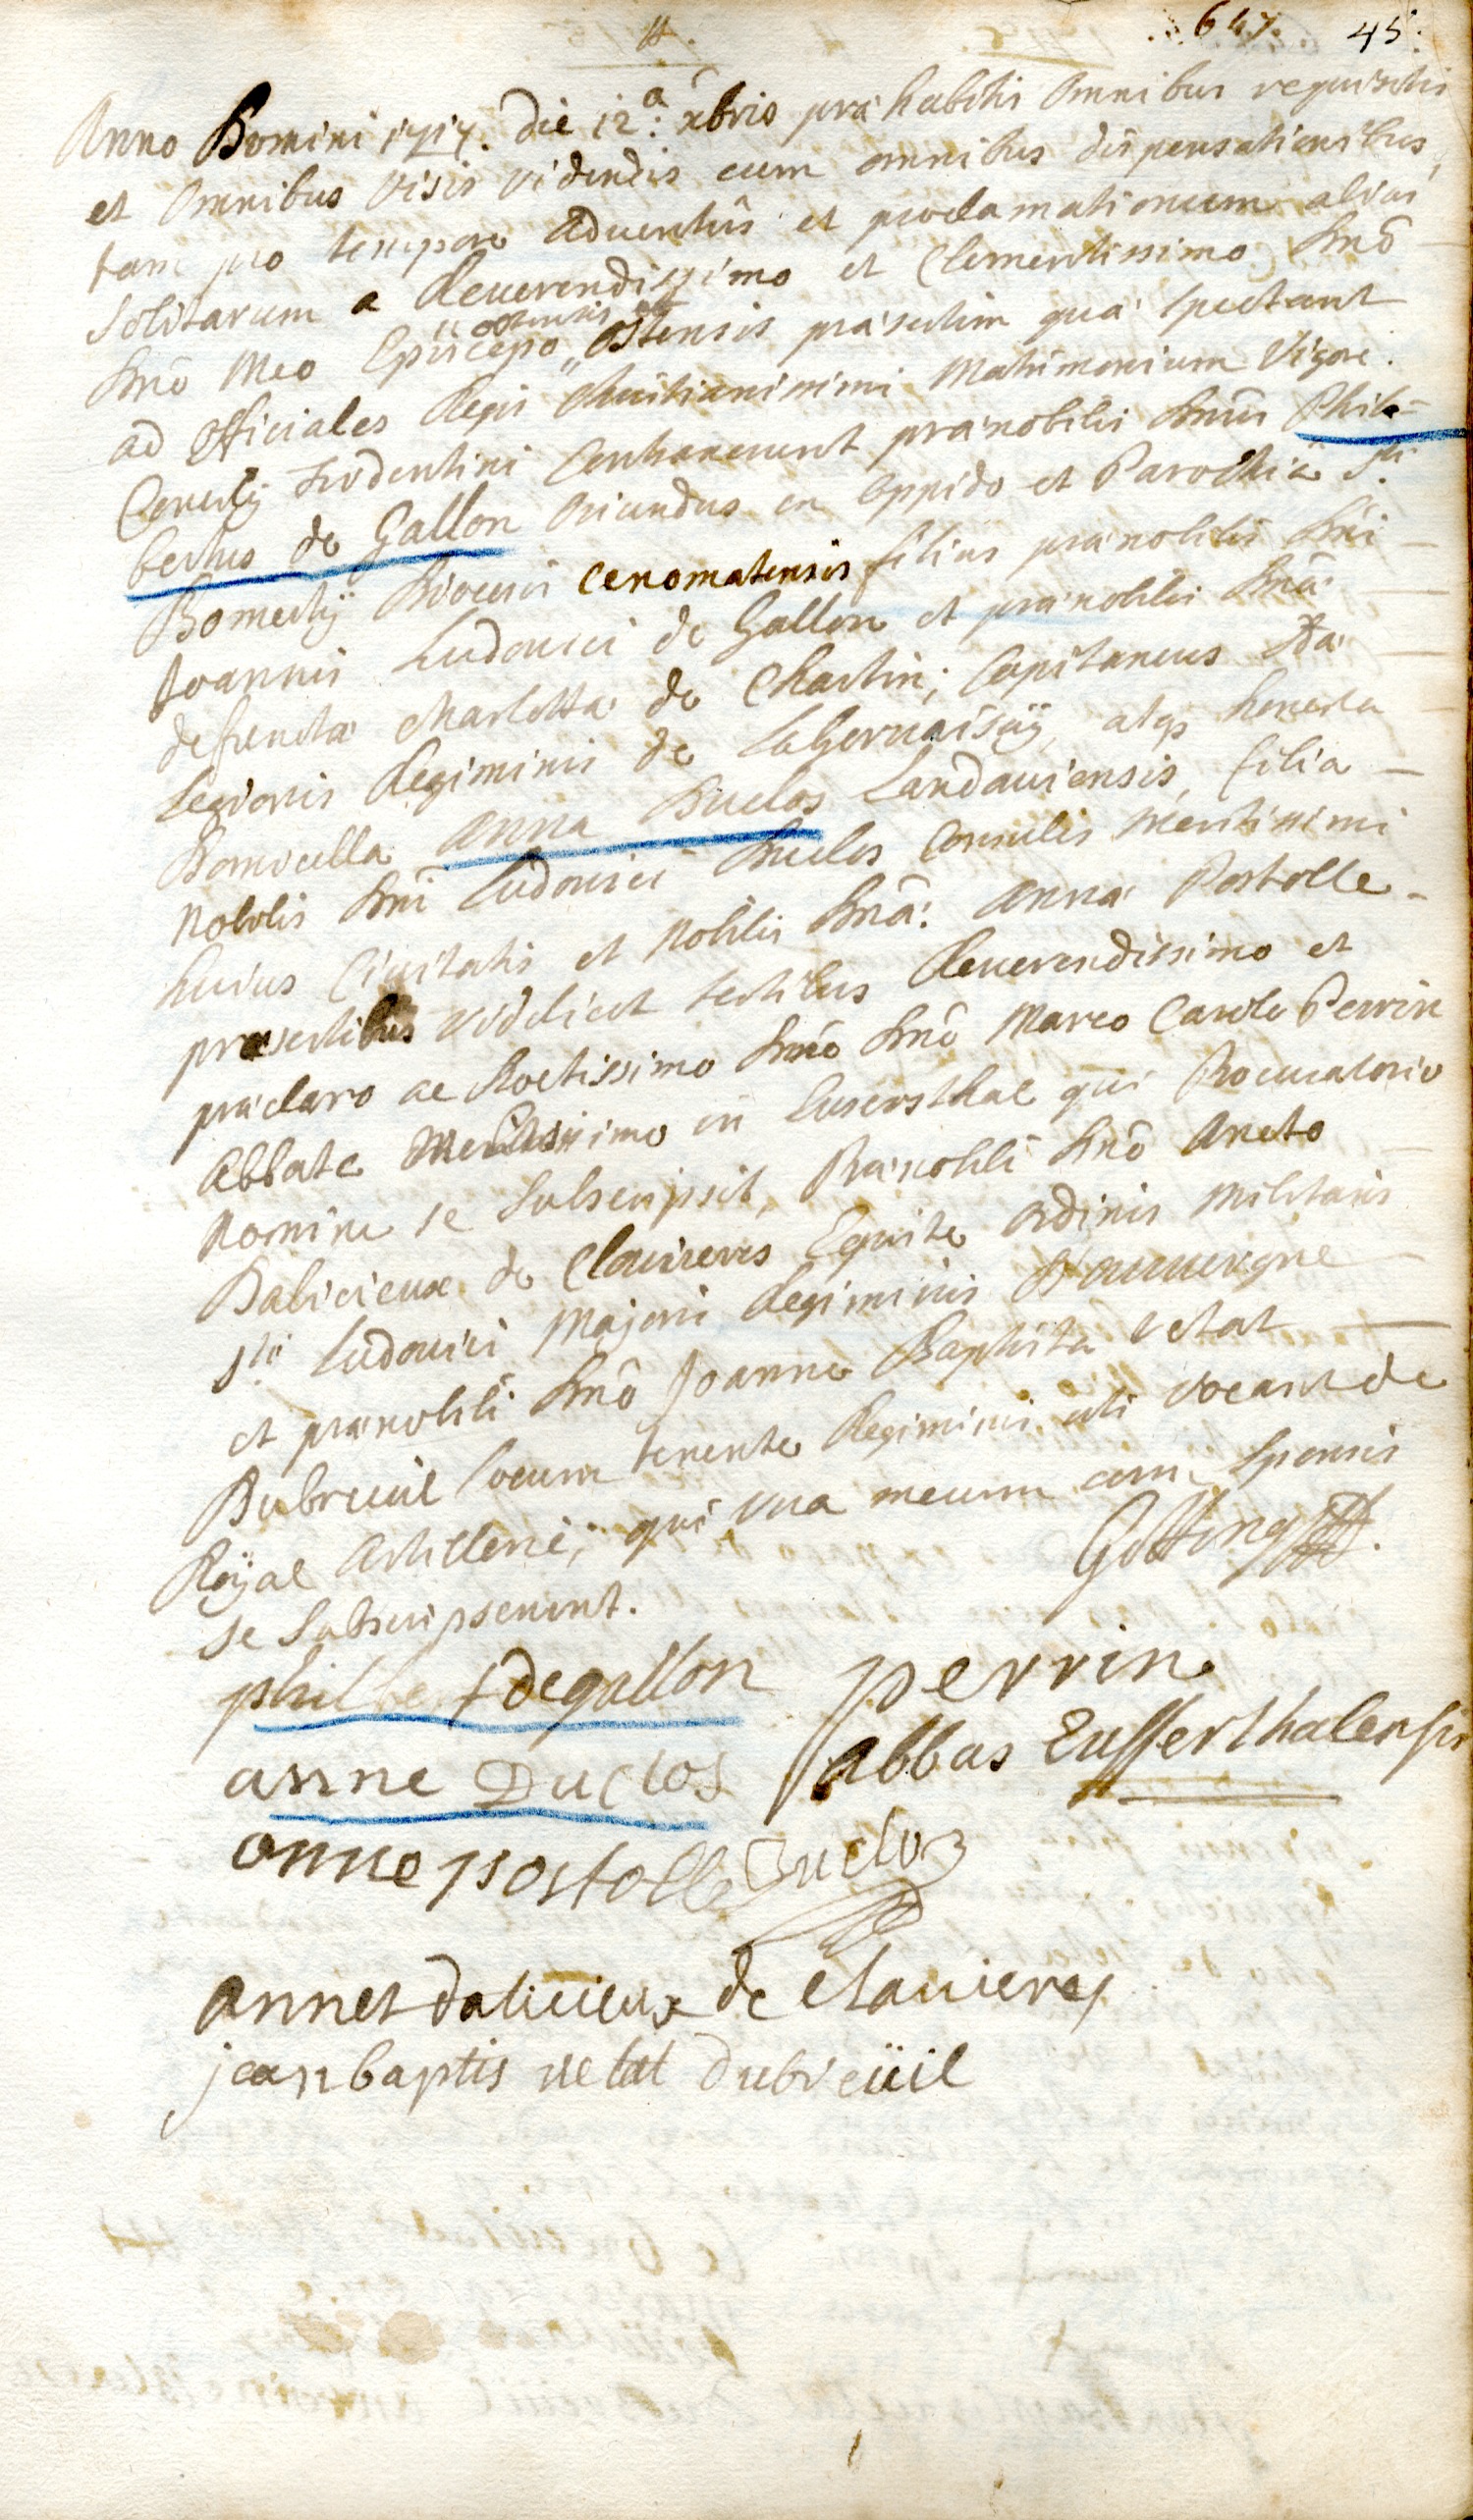 H.
647. 45.
Anno Domini 1717. Die 12.a xbris præhabitis omnibus requisitis
et omnibus visis videndis cum omnibus dispensationibus
tam pro tempore adventûs et proclamationum alias
solitarum a Reverendissimo et Clementissimo Dnō
Dnō meo Episcopo Ostensis præsertim quæ spectant
ad officiales Regis Christianissimi Matrimonium vigore
Concilÿ Tridentini Contraxerunt prænobilis Dnūs Phili-
bertus de Gallon oriundus ex oppido et Parochia Sti
Bomerÿ Diocesis Cenomatensis filius prænobilis Dni
Joannis Ludovici de Gallon et prænobilis Dnæ
defunctæ Charlottæ de Chartin; Capitaneus
Legionis Regiminis de LaGervaisaÿ, atq; honesta
Domicella Anna Duclos Landaviensis, filia
Nobilis Dni Ludovici Duclos Consulis meritissimi
huius Civitatis et Nobilis Dnæ: Annæ Postolle
præsentibus videlicet testibus Reverendissimo et
præclaro ac Doctissimo Dnō Dnō Marco Carolo Perrin
Abbate in Eusersthal qui Procuratorio
Nomine se subscripsit, Prænobili Dnō Aneto
Dalicieux de Clavieres Equite ordinis Militaris
Sti Ludovici Majori Regiminis D'auvergne
et prænobili Dnō Joanne Baptista vetat
Dubreuil locum tenente Regiminis uti vocant de
Roÿal Artillerie, qui una mecum cum sponsis
se subscripserunt.
Gotting
philbert degallon
perrin
abbas Eusserthalensis
anne Duclos
anne postolle Duclos
annet dalicieux de Clavieres
jean baptis vetat dubreüil